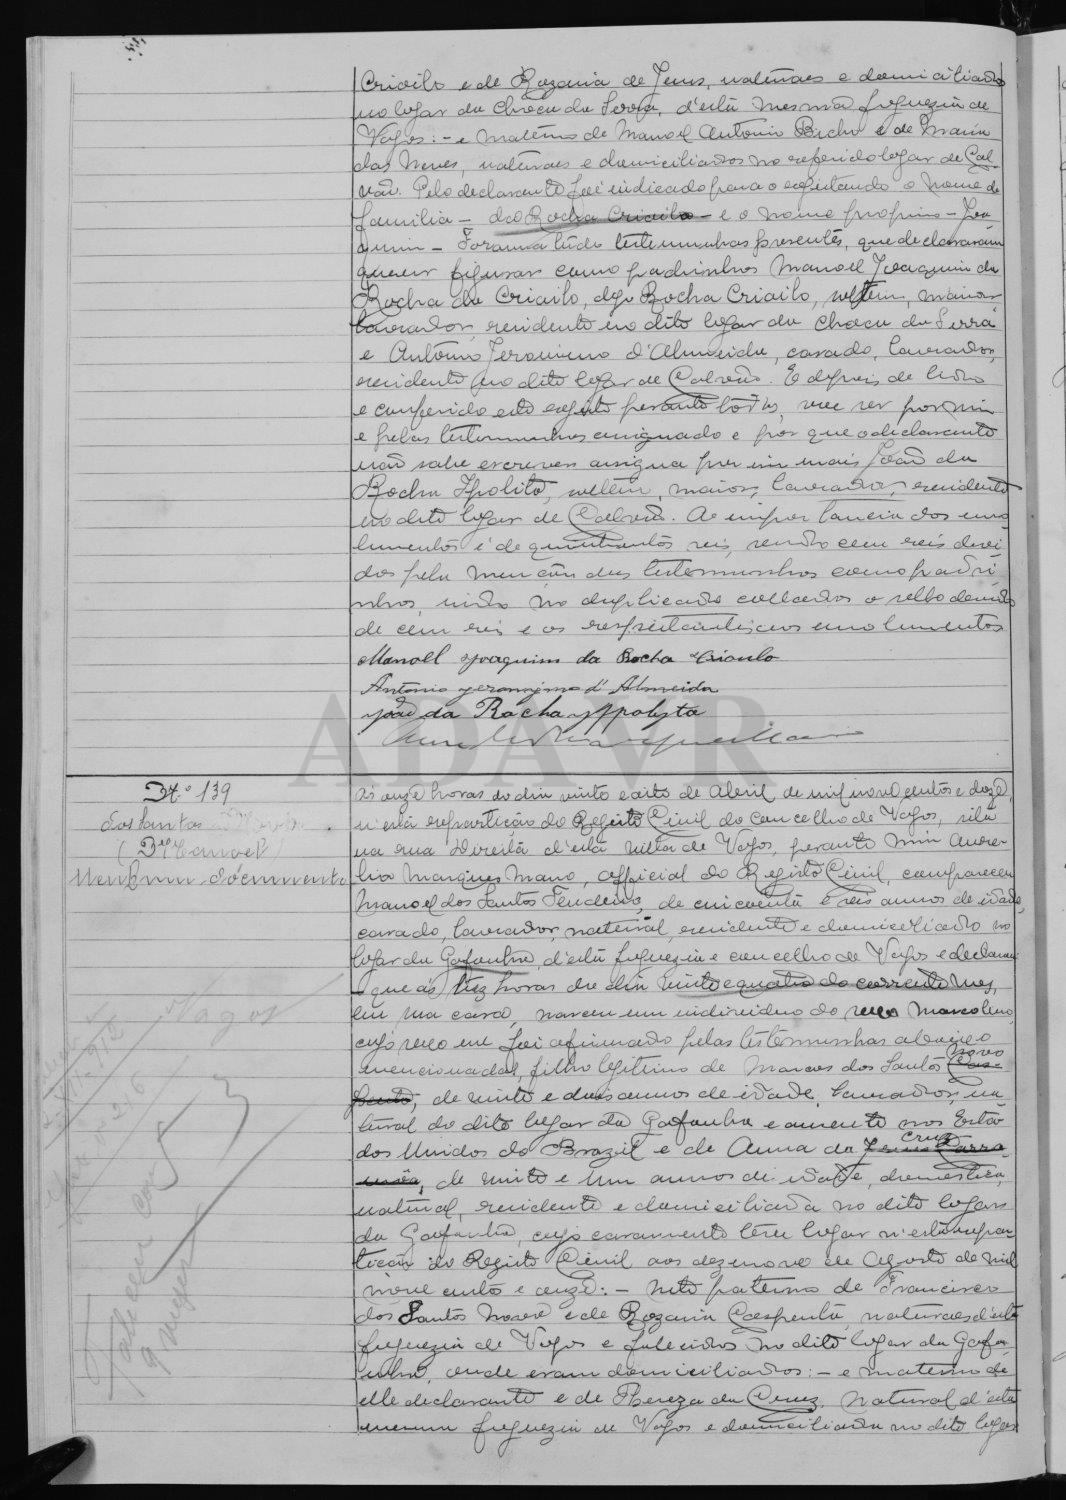 Crioilo e de Rozaria de Jesus, naturaes e domiciliados
no logar da Choca da Serra, d'esta mesma freguezia de
Vagos: - e materno de Manoel Antonio Bicho e de Maria
das Neves, naturaes e domiciliados no referido logar de Cal-
vão. Pelo declarante foi indicado para o registando o nome de
familia - da Rocha Crioilo - e o nome proprio - Joa-
quim - Foram a tudo testemunhas presentes, que declararam
querer figurar como padrinhos Manoel Joaquim da
Rocha do Crioilo, digo Rocha Crioilo, solteiro, maior,
lavrador, residente no dito logar da Choca da Serra
e Antonio Jeronimo d'Almeida, casado, lavrador,
residente no dito logar de Calvão. E depois de lido
e conferido este registo perante todos, vae ser por mim
e pelas testemunhas assignado e por que o declarante
não sabe escrever assigna por sim mais João da
Rocha Ipolito, solteiro, maior, lavrador, residente
no dito logar de Calvão. A importancia dos emo-
lumentos é de quinhentos reis, sendo cem reis devi-
dos pela menção das testemunhas como padri-
nhos, indo no duplicado collados o sello devido
de cem reis e os respectivos emolumentos
Manoel Joaquim da Rocha Crioulo
Antonio Jeronymo d'Almeida
João da Rocha Yppolyto
ADAVR
N.º 139
dos Santos Novo
(Manoel)
Nenhum documento
Vagos
Faleceu com 5
mezes
Ás onze horas do dia vinte e oito de Abril de mil novecentos e doze,
n'esta repartição do Registo Civil do concelho de Vagos, sita
na rua Direita d'esta villa de Vagos, perante mim Aure-
lio Marques Mano, official do Registo Civil, compareceu
Manoel dos Santos Tendeiro, de cincoenta e seis annos de idade,
casado, lavrador, natural, residente e domiciliado no
logar da Gafanha, d'esta freguezia e concelho de Vagos e declarou
que ás trez horas do dia vinte e quatro do corrente mez,
em sua casa, nasceu um individuo do sexo masculino,
cujo sexo me foi afirmado pelas testemunhas abaixo
mencionadas, filho legitimo de Marcos dos Santos Novo
de vinte e dois annos de idade, lavrador, na-
tural do dito logar da Gafanha e ausente nos Esta-
dos Unidos do Brazil e de Anna da Cruz
de vinte e um annos de idade, domestica,
natural, residente e domiciliada no dito logar
da Gafanha, cujo casamento teve logar n'esta repar-
tição do Registo Civil aos dezenove de Agosto de mil
nove centos e onze: - neto paterno de Francisco
dos Santos Novo e de Rozaria Caspenta, naturaes d'esta
freguezia de Vagos e falecidos no dito logar da Gafa-
nha, onde eram domiciliados: - e materno de
elle declarante e de Thereza da Cruz, natural d'esta
mesma freguezia de Vagos e domiciliada no dito logar